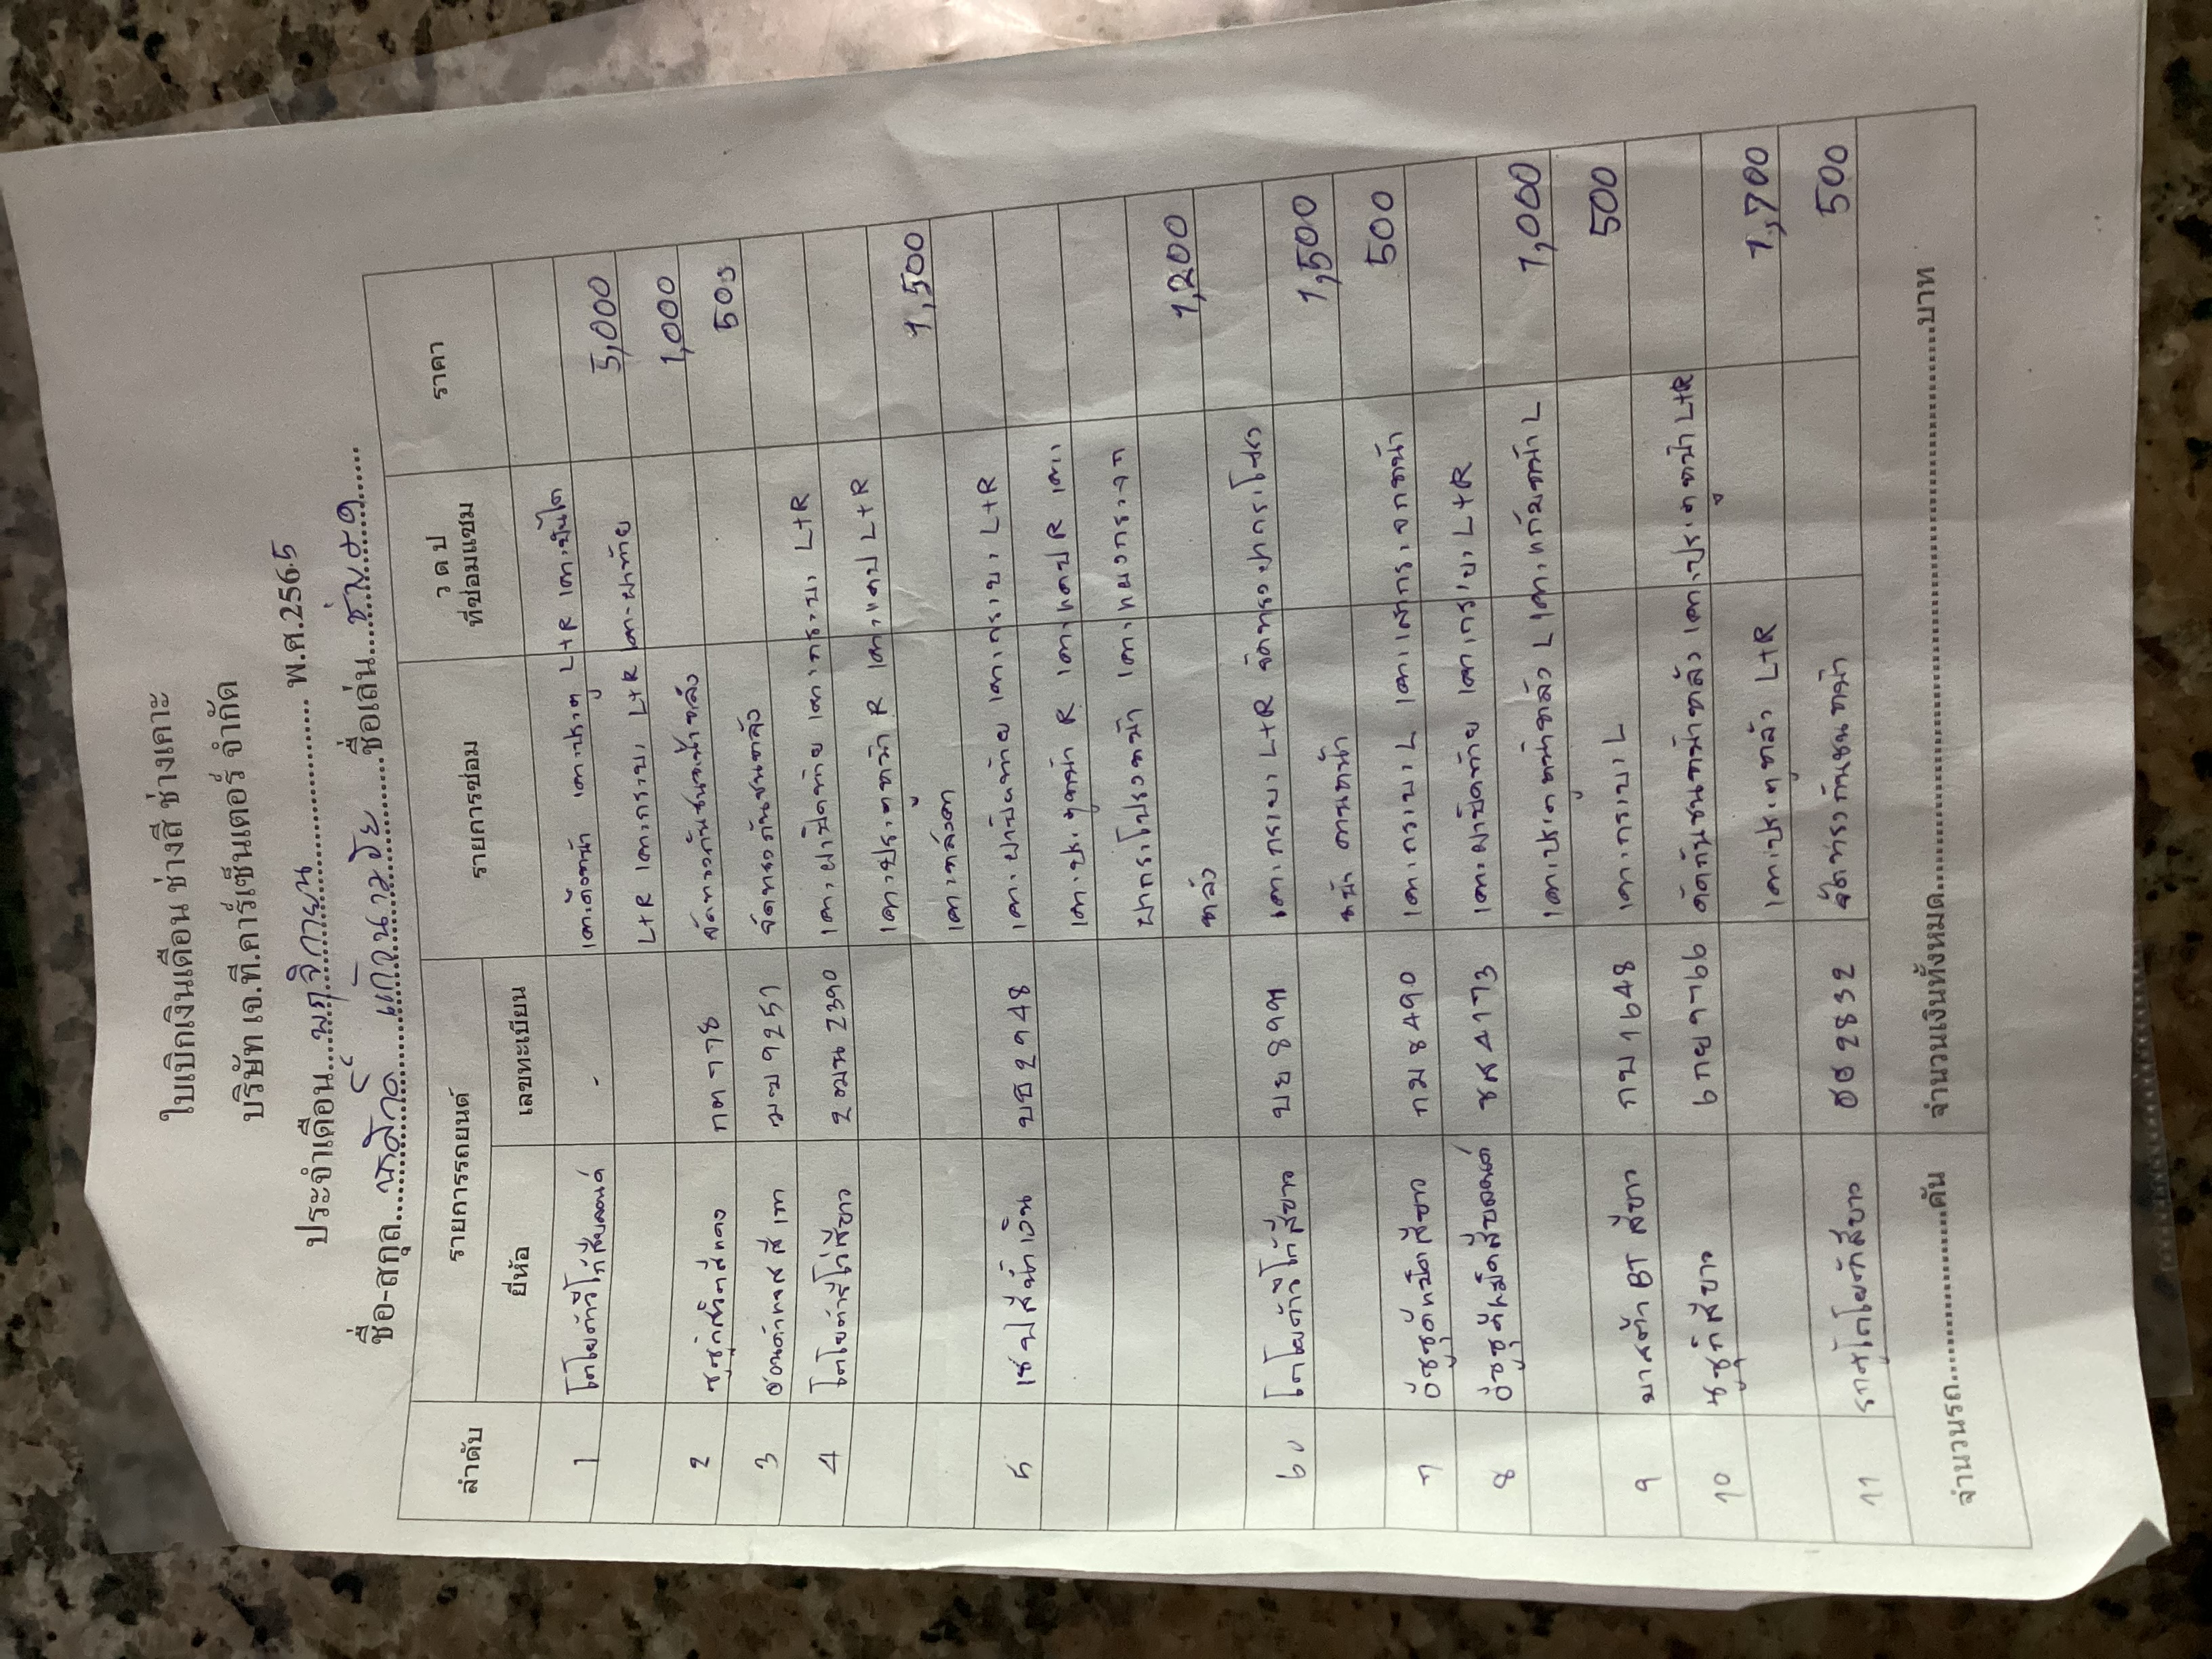 ใบเบิกเงินเดือน ช่างสี ช่างเคาะ
บริษัท เจ.ที.คาร์เซ็นเตอร์ จำกัด
ประจำเดือน...พฤจิกายน........................ พ.ศ.2565
ชื่อ-สกุล....นาวิกด์....แก้วนาวงัย......ชื่อเล่น....
ลำดับ รายการรถยนต์ รายการซ่อม ว ด ป ที่ซ่อมแซม ราคา
ยี่ห้อ เลขทะเบียน
1 โตโยต้าวีโก้สีบลอนด์ - เคาะคิ้วหน้า เคาะประตู L+R เคาะบันได
L+R เคาะกระบะ L+R เคาะฝาท้าย 5,000
2 ซูซุกิสวิทสีแดง กต 778 จัดทรงกันชนหน้าหลัง 1,000
3 ฮอนด้าแจสสีเทา มข 9257 จัดทรงกันชนหลัง 500
4 โตโยต้ารีโว่สีขาว 2ฒน 2390 เคาะฝาปิดท้าย เคาะกระบะ L+R
เคาะประตูหน้า R เคาะแคป L+R
เคาะหลังคา 1,500
5 เชฟสีน้ำเงิน บธ 2948 เคาะฝาปิดท้าย เคาะกระบะ L+R
เคาะประตูหน้า R เคาะแคป R เคาะ
ฝากระโปรงหน้า เคาะแผงกระจก
หลัง 1,200
6 โตโยต้าวีโก้สีขาว บย 8991 เคาะกระบะ L+R จัดทรงฝากระโปรง
หน้า คานหน้า 1,500
7 อีซูซุดีแม็คสีขาว กม 8490 เคาะกระบะ L เคาะเสากระจกหน้า 500
8 อีซูซุดีแม็คสีบลอนด์ ชส 4173 เคาะฝาปิดท้าย เคาะกระบะ L+R
เคาะประตูหน้าหลัง L เคาะแก้มหน้า L 1,000
9 มาสด้า BT สีขาว กบ 1648 เคาะกระบะ L 500
10 ซูซุกิสีขาว 6กย 9766 ดัดกันชนหน้าหลัง เคาะประตูหน้า L+R
เคาะประตูหลัง L+R 1,700
11 รถตู้โตโยต้าสีขาว ฮฮ 2832 จัดทรงกันชนหน้า 500
จำนวนรถ.....................คัน จำนวนเงินทั้งหมด...............................................................บาท